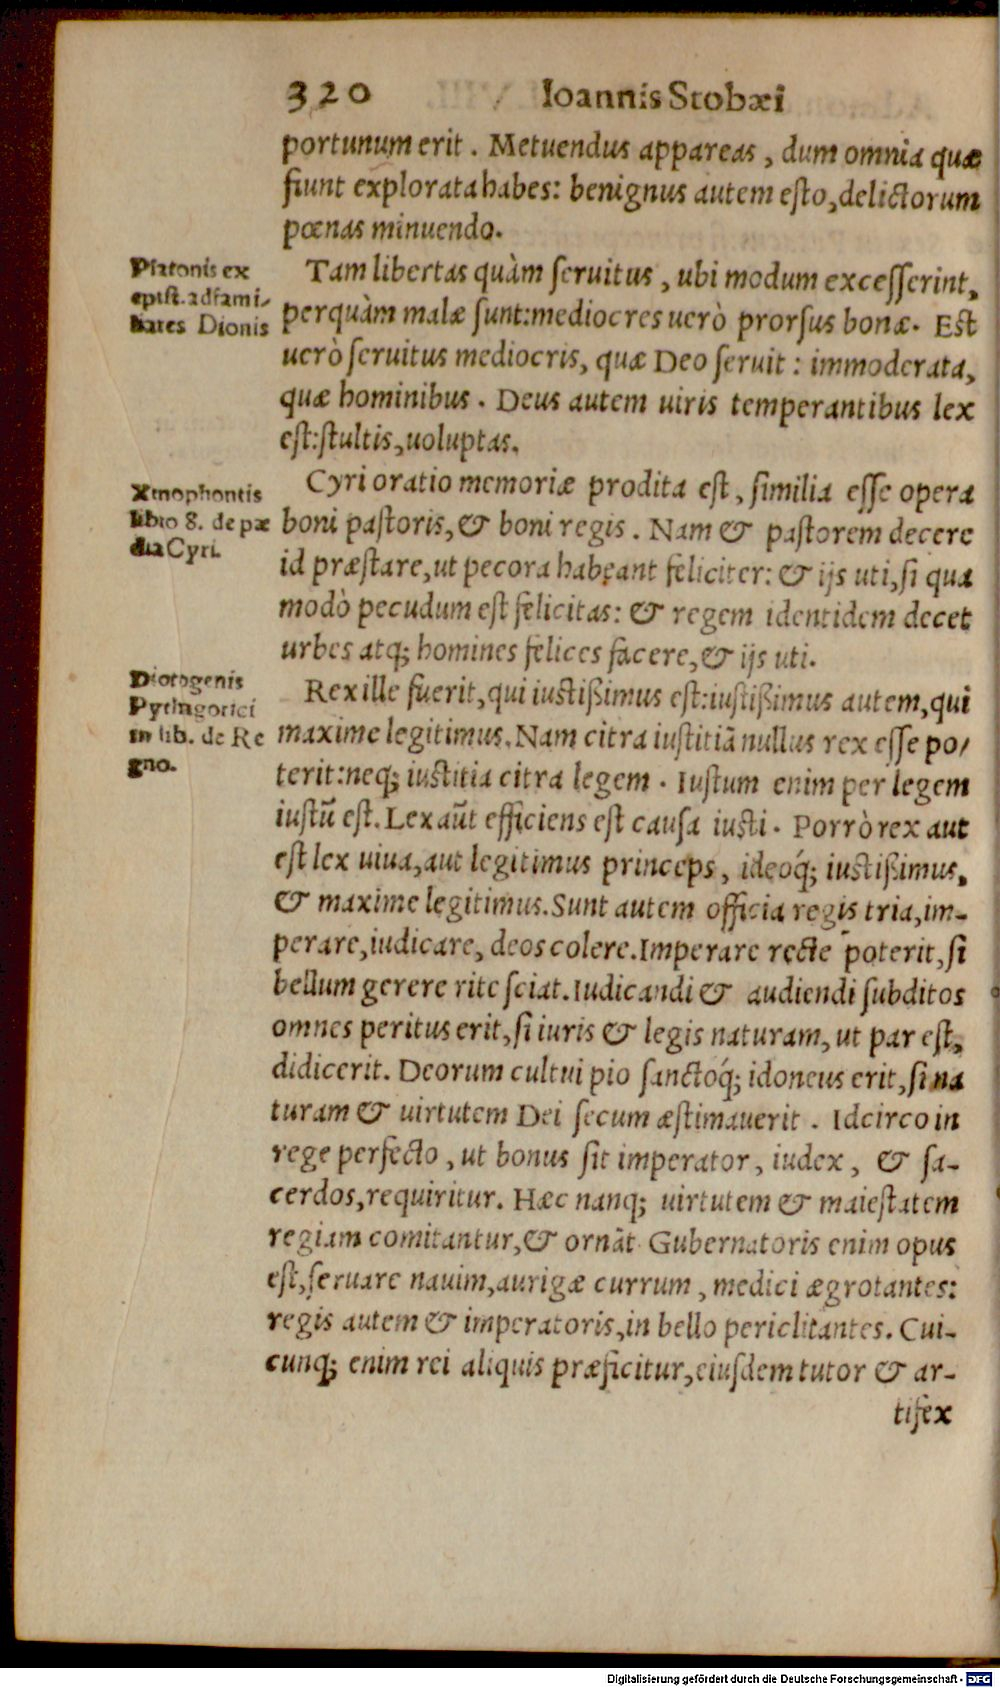 320 Ioannis Stobæi
portunum erit. Metuendus appareas, dum omnia quæ
fiunt explorata habes: benignus autem esto, delictorum
pœnas minuendo.
Platonis ex
epist. ad fami-
liares Dionis
Tam libertas quàm seruitus, ubi modum excesserint,
perquàm malæ sunt: mediocres uerò prorsus bonæ. Est
uerò seruitus mediocris, quæ Deo seruit: immoderata,
quæ hominibus. Deus autem uiris temperantibus lex
est: stultis, uoluptas.
Xenophontis
libro 8. de pæ
dia Cyri.
Cyri oratio memoriæ prodita est, similia esse opera
boni pastoris, & boni regis. Nam & pastorem decere
id præstare, ut pecora habeant feliciter: & ijs uti, si qua
modò pecudum est felicitas: & regem identidem decet
urbes atq; homines felices facere, & ijs uti.
Diotogenis
Pythagorici
in lib. de Re
gno.
Rex ille fuerit, qui iustißimus est: iustißimus autem, qui
maxime legitimus. Nam citra iustitiã nullus rex esse po-
terit: neq; iustitia citra legem. Iustum enim per legem
iustũ est. Lex aũt efficiens est causa iusti. Porrò rex aut
est lex uiua, aut legitimus princeps, ideoq́; iustißimus,
& maxime legitimus. Sunt autem officia regis tria, im-
perare, iudicare, deos colere. Imperare recte poterit, si
bellum gerere rite sciat. Iudicandi & audiendi subditos
omnes peritus erit, si iuris & legis naturam, ut par est,
didicerit. Deorum cultui pio sanctoq́; idoneus erit, si na
turam & uirtutem Dei secum æstimauerit. Idcirco in
rege perfecto, ut bonus sit imperator, iudex, & sa-
cerdos, requiritur. Hæc nanq; uirtutem & maiestatem
regiam comitantur, & ornãt. Gubernatoris enim opus
est, seruare nauim, aurigæ currum, medici ægrotantes:
regis autem & imperatoris, in bello periclitantes. Cui-
cunq; enim rei aliquis præficitur, eiusdem tutor & ar-
tifex
Digitalisierung gefördert durch die Deutsche Forschungsgemeinschaft - DFG